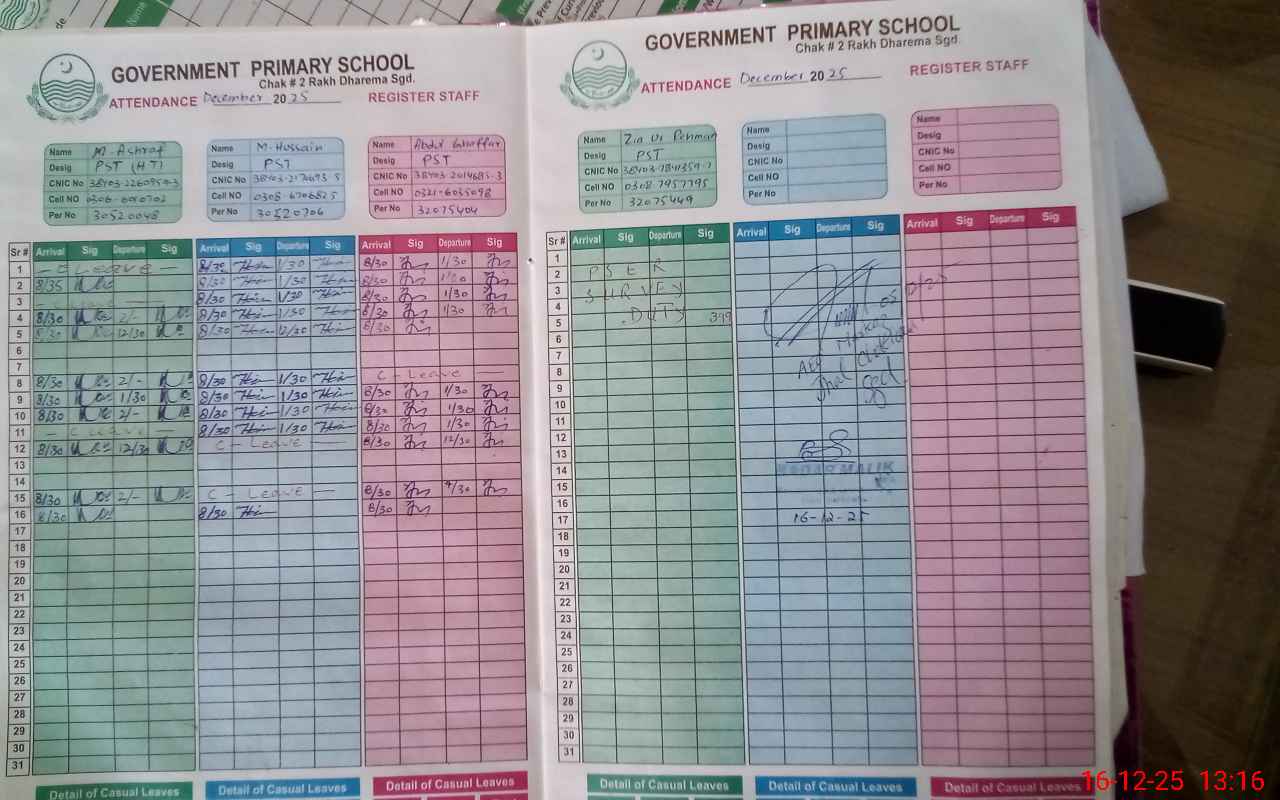 GOVERNMENT PRIMARY SCHOOL
Chak # 2 Rakh Dharema Sgd.
ATTENDANCE December 2025 REGISTER STAFF
Name M. Ashraf
Desig PST (HT)
CNIC No
Cell NO
Per No 30520048
Name M. Hussain
Desig PST
CNIC No
Cell NO 0308-6706825
Per No 30520706
Name Abdul Ghaffar
Desig PST
CNIC No 38403-2014685-3
Cell NO 0321-6035098
Per No 32075404
Sr # Arrival Sig Departure Sig Arrival Sig Departure Sig Arrival Sig Departure Sig
1 - C Leave - 8/30 1/30 8/30 1/30
2 8/35 8/30 1/30 8/30
3 8/30 1/30 8/30 1/30
4 8/30 2/- 8/30 1/30 8/30 1/30
5 8/30 12/30 8/30 12/30 8/30
6
7
8 8/30 2/- 8/30 1/30 C - Leave -
9 8/30 1/30 8/30 1/30 8/30 1/30
10 8/30 2/- 8/30 1/30 8/30 1/30
11 C Leave - 8/30 1/30 8/30 1/30
12 8/30 12/30 C - Leave - 8/30 12/30
13
14
15 8/30 2/- C - Leave - 8/30 /30
16 8/30 8/30 8/30
17
18
19
20
21
22
23
24
25
26
27
28
29
30
31
Detail of Casual Leaves Detail of Casual Leaves Detail of Casual Leaves
GOVERNMENT PRIMARY SCHOOL
Chak # 2 Rakh Dharema Sgd.
ATTENDANCE December 2025 REGISTER STAFF
Name Zia Ur Rehman
Desig PST
CNIC No
Cell NO 0308 7957795
Per No 32075449
Name
Desig
CNIC No
Cell NO
Per No
Name
Desig
CNIC No
Cell NO
Per No
Sr # Arrival Sig Departure Sig Arrival Sig Departure Sig Arrival Sig Departure Sig
1
2 PSER
3 SURVEY
4
5 DUTY 399
6
7
8
9
10
11
12
13
14
15
16
17 16-12-25
18
19
20
21
22
23
24
25
26
27
28
29
30
31
Detail of Casual Leaves Detail of Casual Leaves Detail of Casual Leaves
16-12-25 13:16